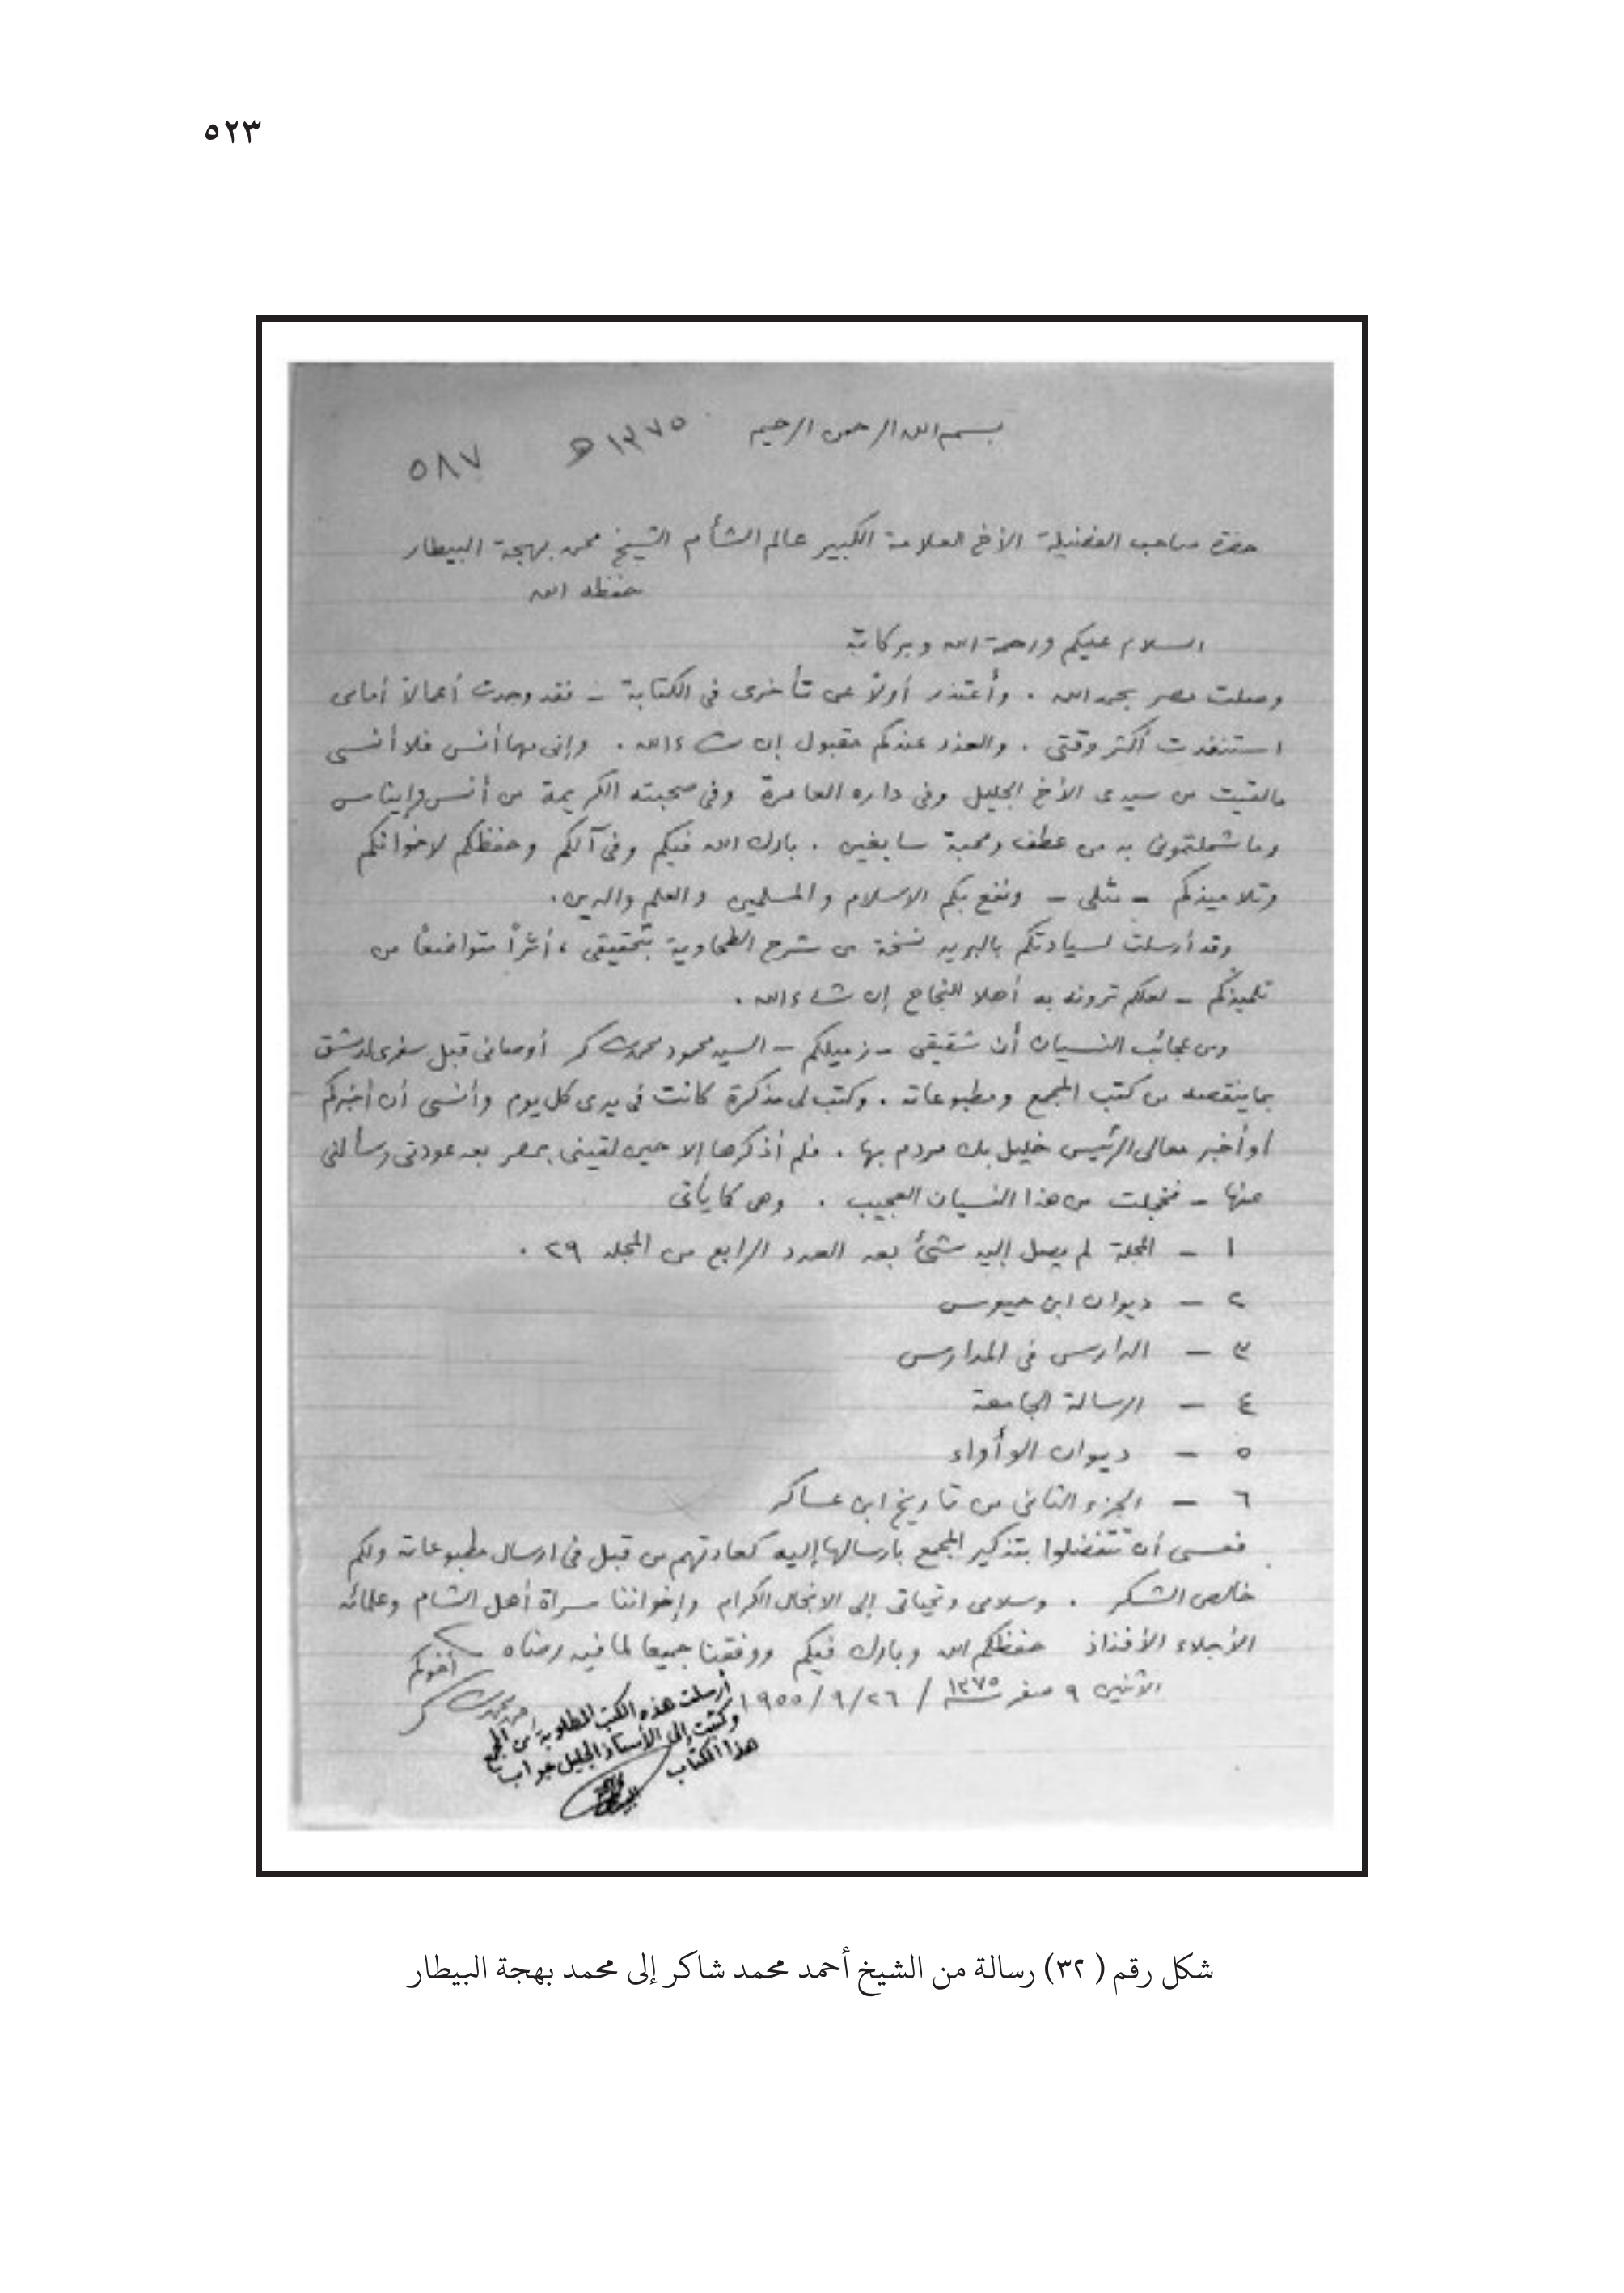 ٥٢٣
بسم الله الرحمن الرحيم ١٣٧٥ هـ ٥٨٧
حضرة صاحب الفضيلة الأخ العلامة الكبير عالم الشأم الشيخ محمد بهجة البيطار
حفظه الله
السلام عليكم ورحمة الله وبركاته
وصلت مصر بحمد الله . وأعتذر أولاً عن تأخرى فى الكتابة - فقد وجدت أعمالاً أمامى
استنفدت أكثر وقتى . والعذر عندكم مقبول إن شاء الله . وإنى مهما أنس فلا أنسى
مالقيت من سيدى الأخ الجليل وفى داره العامرة وفى صحبته الكريمة من أنس وإيناس
وما شملتمونى به من عطف ومحبة سابغين . بارك الله فيكم وفى آلكم وحفظكم لاخوانكم
وتلاميذكم - مثلى - ونفع بكم الاسلام والمسلمين والعلم والدين .
وقد أرسلت لسيادتكم بالبريد نسخة من شرح الطحاوية بتحقيقى ، أثراً متواضعاً من
تلميذكم - لعلكم ترونه به أهلا للنجاح إن شاء الله .
ومن عجائب النسيان أن شقيقى - زميلكم - السيد محمود محمد شاكر أوصانى قبل سفرى لدمشق
بما ينقصه من كتب المجمع ومطبوعاته . وكتب لى مذكرة كانت فى يدى كل يوم وأنسى أن أخبركم
أو أخبر معالى الرئيس خليل بك مردم بها . فلم أذكرها إلا حين لقينى بمصر بعد عودتى وسألنى
عنها - فخجلت من هذا النسيان العجيب . وهى كما يأتى
١ - المجلة لم يصل إليه شئ بعد العدد الرابع من المجلد ٢٩ .
٢ - ديوان ابن حيوس
٣ - الدارس فى المدارس
٤ - الرسالة الجامعة
٥ - ديوان الوأواء
٦ - الجزء الثانى من تاريخ ابن عساكر
فعسى أن تتفضلوا بتذكير المجمع بارسالها إليه كعادتهم من قبل فى ارسال مطبوعاته ولكم
خالص الشكر . وسلامى وتحياتى إلى الانجال الكرام وإخواننا سراة أهل الشام وعلمائه
الأجلاء الأفذاذ حفظكم الله وبارك فيكم ووفقنا جميعا لما فيه رضاه
أخوكم
الاثنين ٩ صفر سنة ١٣٧٥ / ٢٦/٩/١٩٥٥
أحمد محمد شاكر
أرسلت هذه الكتب المطلوبة من المجمع
وكتبت إلى الأستاذ الجليل جواب
هذا الكتاب
شكل رقم ( ٣٢) رسالة من الشيخ أحمد محمد شاكر إلى محمد بهجة البيطار